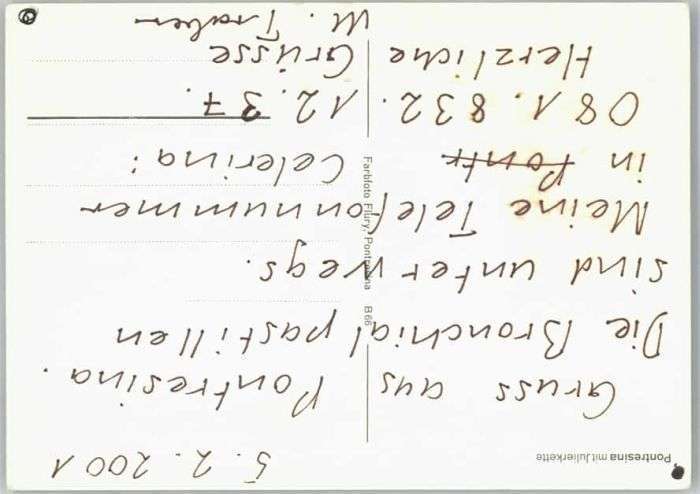 5.2.2001
Gruss aus Pontresina.
Die Bronchialpastillen
sind unterwegs.
Meine Telefonnummer
in Pontr Celerina:
081.832.12.37.
Herzliche Grüsse
M. Traber
Pontresina mit Julierkette
Farbfoto Flury, Pontresina B66